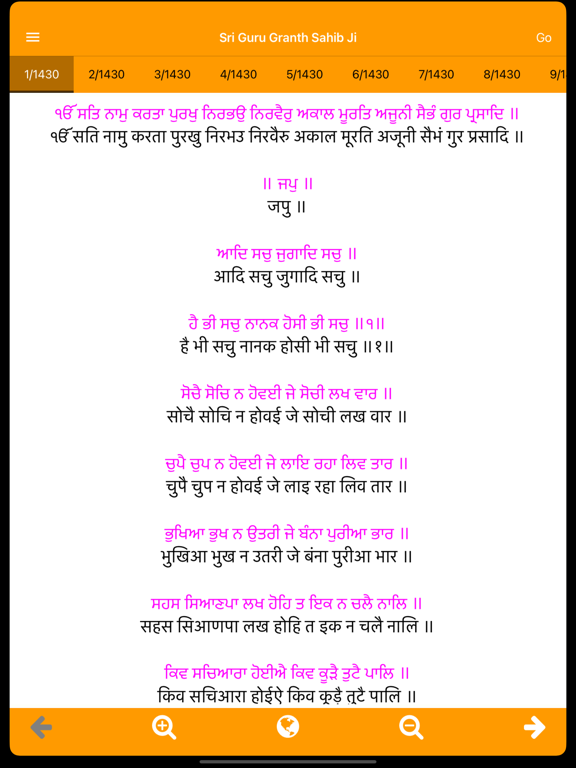 Sri Guru Granth Sahib Ji
Go
1/1430 2/1430 3/1430 4/1430 5/1430 6/1430 7/1430 8/1430 9/1
ੴ ਸਤਿ ਨਾਮੁ ਕਰਤਾ ਪੁਰਖੁ ਨਿਰਭਉ ਨਿਰਵੈਰੁ ਅਕਾਲ ਮੂਰਤਿ ਅਜੂਨੀ ਸੈਭੰ ਗੁਰ ਪ੍ਰਸਾਦਿ ॥
ੴ सति नामु करता पुरखु निरभउ निरवैरु अकाल मूरति अजूनी सैभं गुर प्रसादि ॥
॥ ਜਪੁ ॥
जपु ॥
ਆਦਿ ਸਚੁ ਜੁਗਾਦਿ ਸਚੁ ॥
आदि सचु जुगादि सचु ॥
ਹੈ ਭੀ ਸਚੁ ਨਾਨਕ ਹੋਸੀ ਭੀ ਸਚੁ ॥੧॥
है भी सचु नानक होसी भी सचु ॥१॥
ਸੋਚੈ ਸੋਚਿ ਨ ਹੋਵਈ ਜੇ ਸੋਚੀ ਲਖ ਵਾਰ ॥
सोचै सोचि न होवई जे सोची लख वार ॥
ਚੁਪੈ ਚੁਪ ਨ ਹੋਵਈ ਜੇ ਲਾਇ ਰਹਾ ਲਿਵ ਤਾਰ ॥
चुपै चुप न होवई जे लाइ रहा लिव तार ॥
ਭੁਖਿਆ ਭੁਖ ਨ ਉਤਰੀ ਜੇ ਬੰਨਾ ਪੁਰੀਆ ਭਾਰ ॥
भुखिआ भुख न उतरी जे बंना पुरीआ भार ॥
ਸਹਸ ਸਿਆਣਪਾ ਲਖ ਹੋਹਿ ਤ ਇਕ ਨ ਚਲੈ ਨਾਲਿ ॥
सहस सिआणपा लख होहि त इक न चलै नालि ॥
ਕਿਵ ਸਚਿਆਰਾ ਹੋਈਐ ਕਿਵ ਕੂੜੈ ਤੁਟੈ ਪਾਲਿ ॥
किव सचिआरा होईऐ किव कूड़ै तुटै पालि ॥